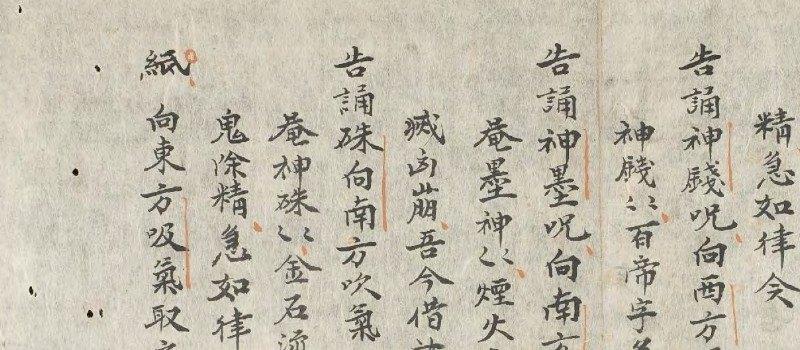 精急如律令
告誦神牋呪向西方
神牋〻百帝字
告誦神墨呪向南方
菴墨神〻煙火
滅凶崩吾今借
告誦硃向南方吹氣
菴神硃〻金石流
鬼除精急如律
紙 向東方吸氣取